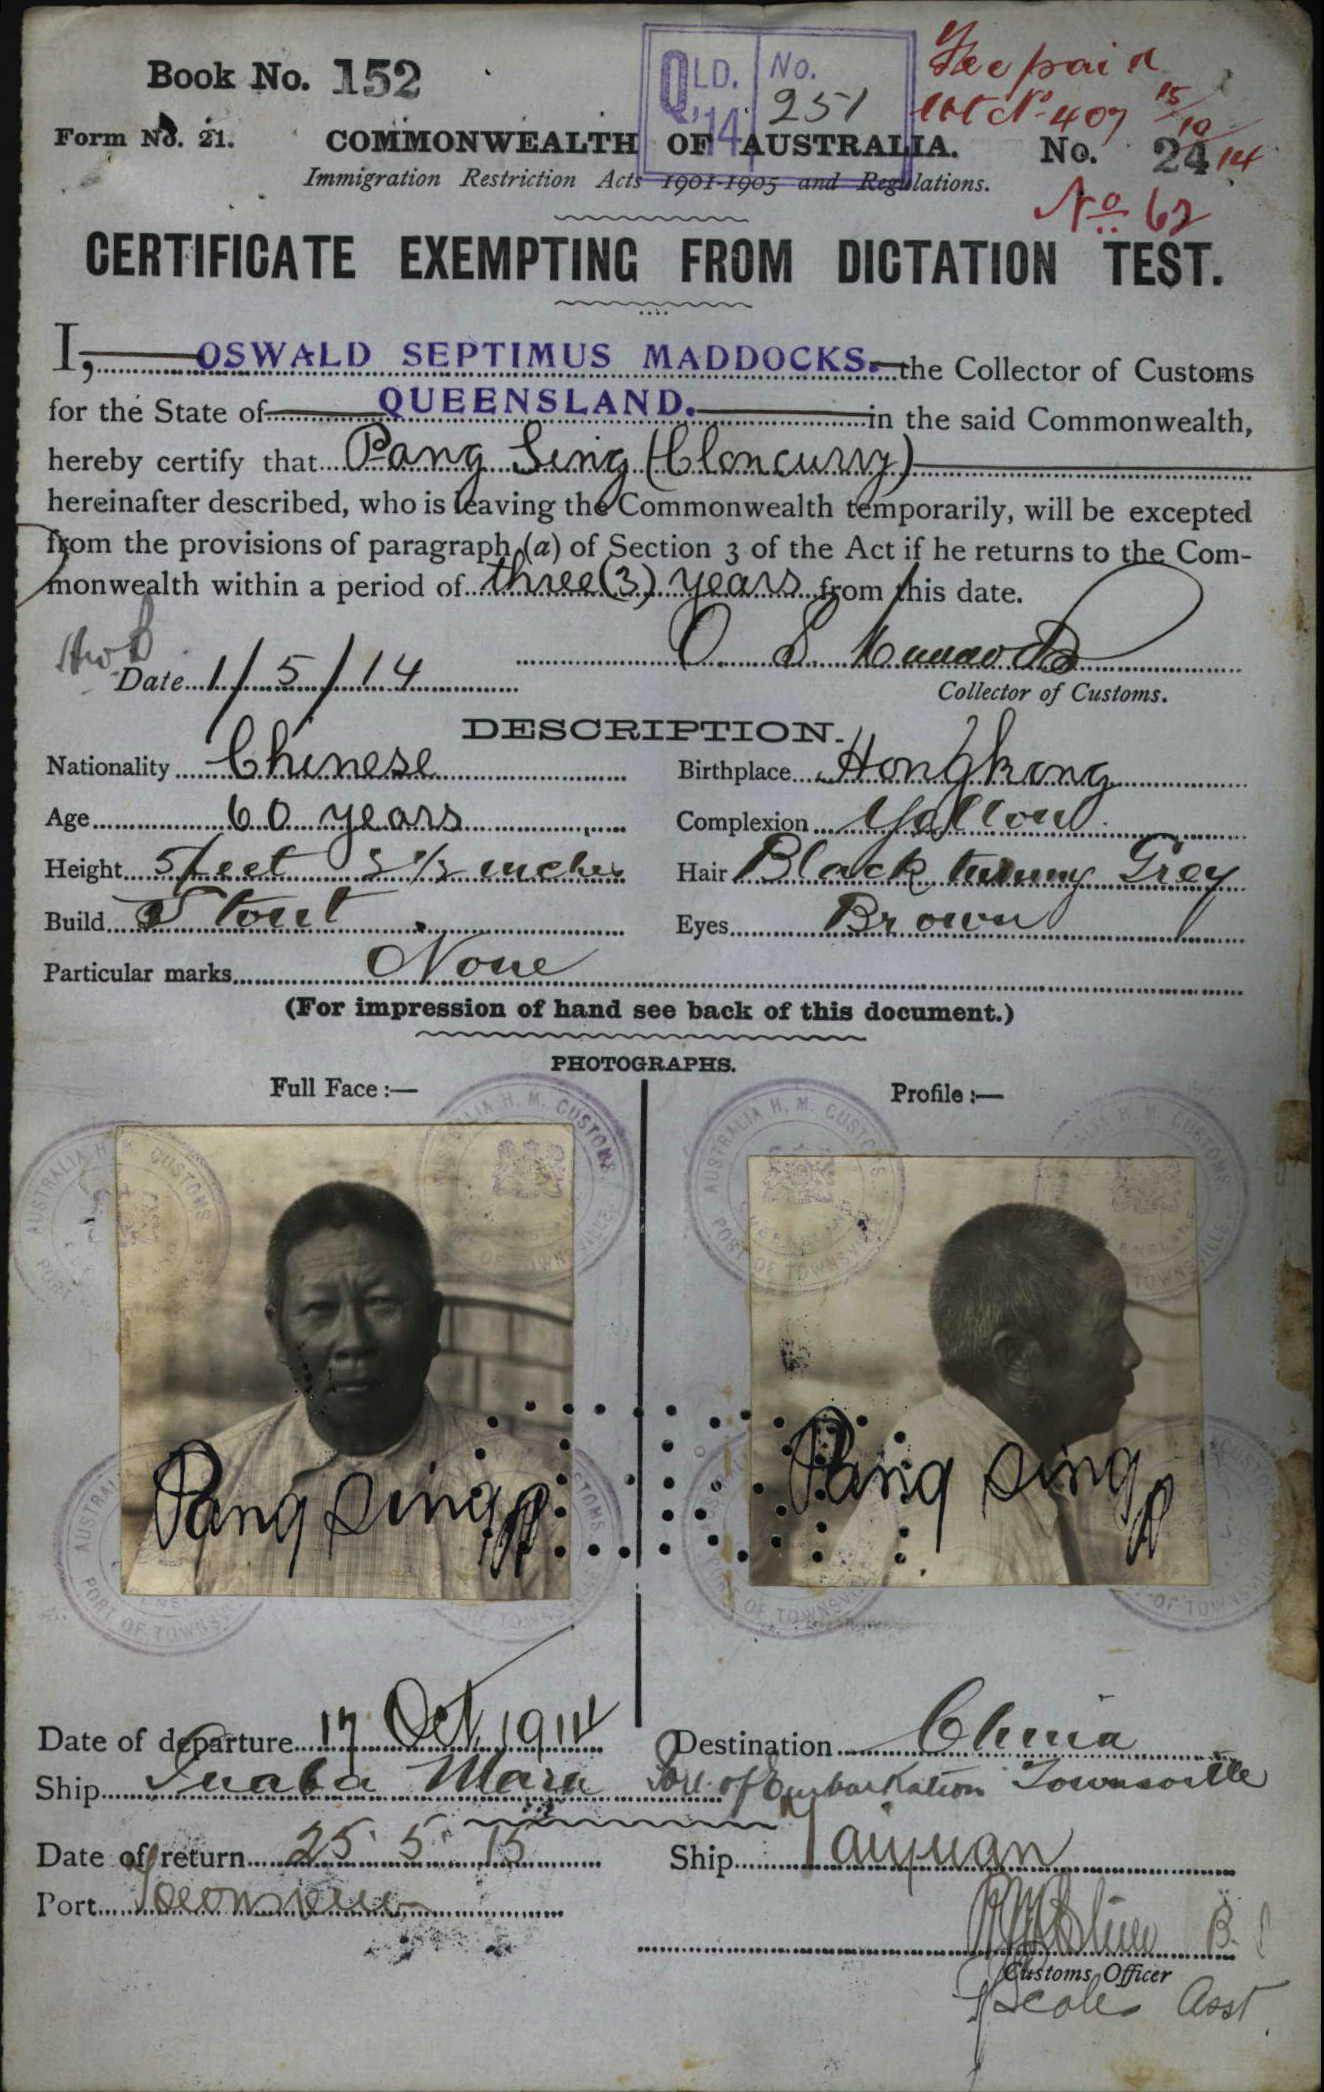 Book No. 152
QLD. No.
'14 251
Fee paid
No 407 15/10/14
Form No. 21.
COMMONWEALTH OF AUSTRALIA.
No. 24
Immigration Restriction Acts 1901-1905 and Regulations.
No 62
CERTIFICATE EXEMPTING FROM DICTATION TEST.
I, OSWALD SEPTIMUS MADDOCKS. the Collector of Customs
for the State of QUEENSLAND. in the said Commonwealth,
hereby certify that Pang Sing (Cloncurry)
hereinafter described, who is leaving the Commonwealth temporarily, will be excepted
from the provisions of paragraph (a) of Section 3 of the Act if he returns to the Com-
monwealth within a period of three (3) years from this date.
O S Maddocks
Date 1/5/14
Collector of Customs.
DESCRIPTION.
Nationality Chinese
Birthplace Hongkong
Age 60 years
Complexion Yellow
Height 5 feet inches
Hair Black turning Grey
Build Stout
Eyes Brown
Particular marks None
(For impression of hand see back of this document.)
PHOTOGRAPHS.
Full Face :—
Profile :—
AUSTRALIA H. M. CUSTOMS
PORT OF TOWNSVILLE
AUSTRALIA H. M. CUSTOMS
PORT OF TOWNSVILLE
Pang Sing
Pang Sing
Date of departure 17 Oct 1914
Destination China
Ship Inaba Maru
Port of Embarkation Townsville
Date of return 25 5 15
Ship Taiyuan
Port Townsville
Customs Officer
Asst